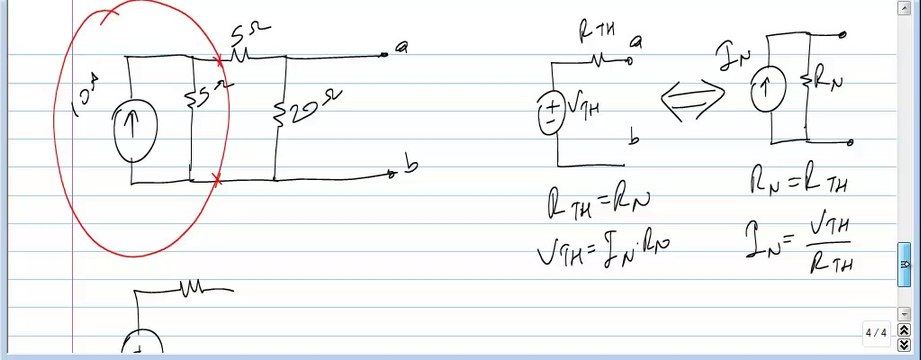 5Ω
a
10A
5Ω
20Ω
b
RTH
a
+
-
VTH
b
IN
RN
RTH = RN
VTH = IN·RN
RN = RTH
IN = VTH
RTH
+
4 / 4